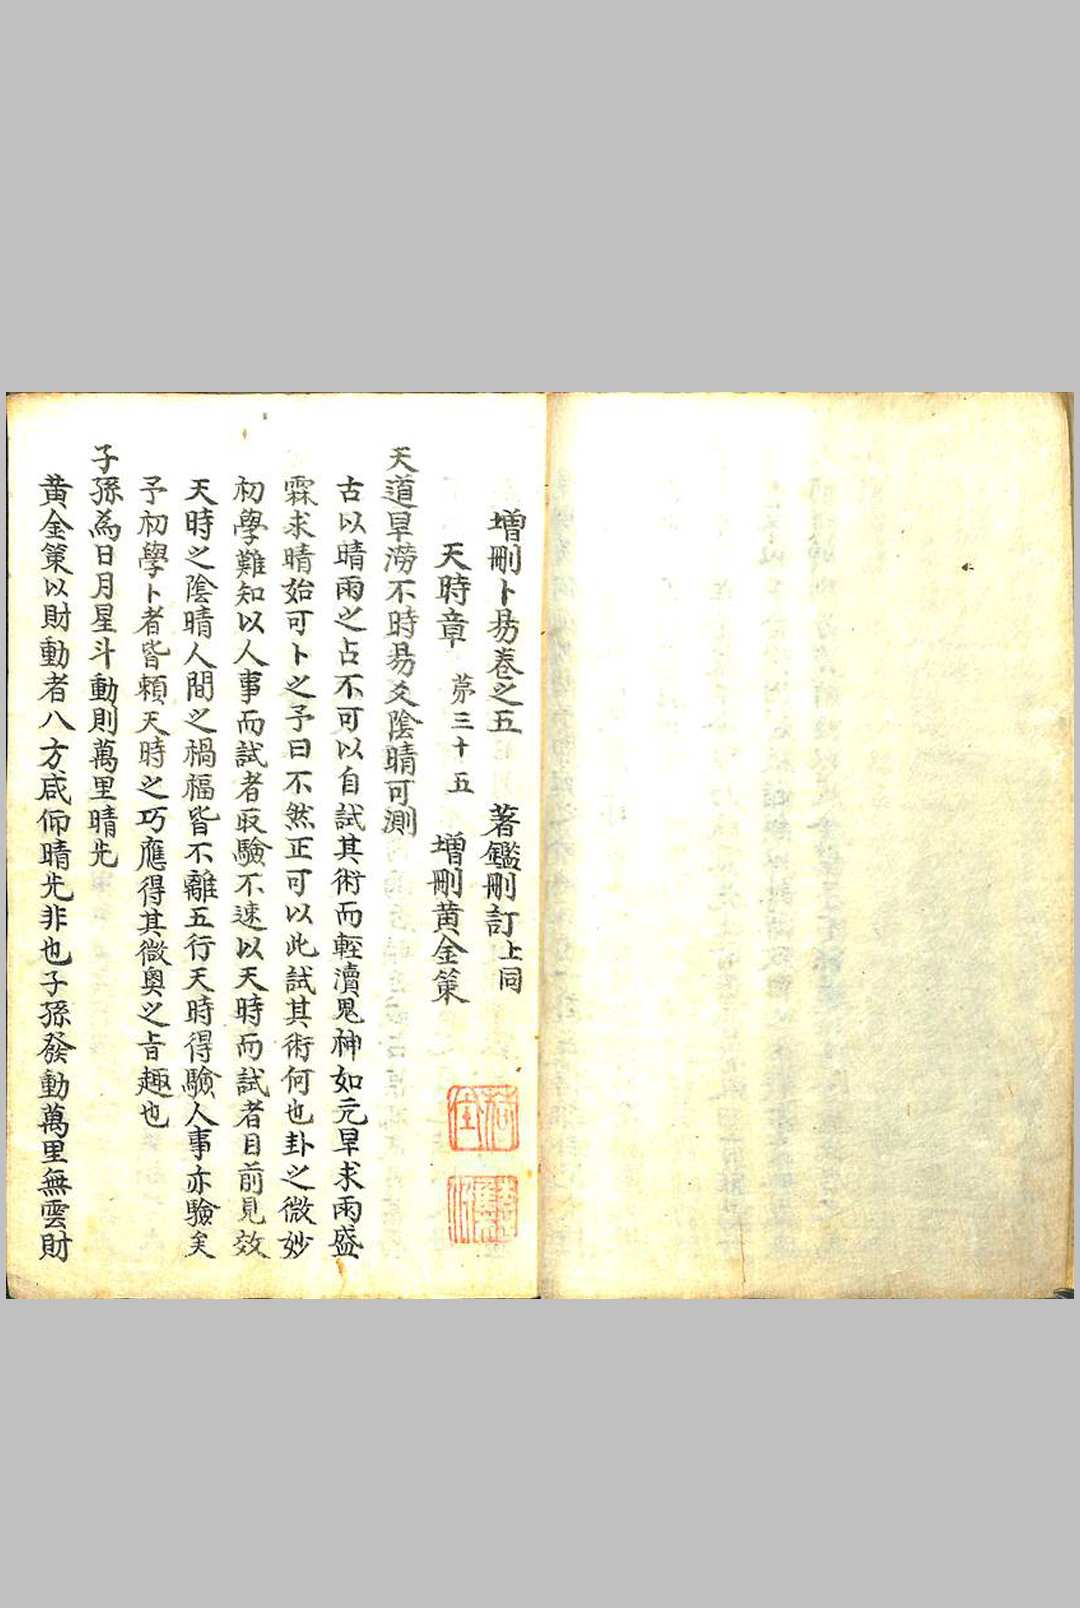 增刪卜易卷之五 著鑑刪訂上同
天時章 苐三十五 增刪黄金策
天道旱澇不時易爻陰晴可測
古以晴雨之占不可以自試其術而輕瀆鬼神如亢旱求雨盛
霖求晴始可卜之予曰不然正可以此試其術何也卦之微妙
初學難知以人事而試者取驗不速以天時而試者目前見效
天時之陰晴人間之禍福皆不離五行天時得驗人事亦驗矣
予初學卜者皆賴天時之巧應得其微奥之旨趣也
子孫為日月星斗動則萬里晴光
黄金策以財動者八方咸仰晴光非也子孫發動萬里無雲財